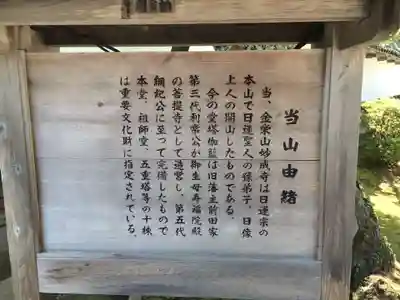 当山由緒
当、金栄山妙成寺は日蓮宗の
本山で日蓮聖人の孫弟子、日像
上人の開山したものである。
今の堂塔伽藍は旧藩主前田家
第三代利常公が御生母寿福院殿
の菩提寺として造営し、第五代
綱紀公に至って完備したもので
本堂、祖師堂、五重塔等の十棟
は重要文化財に指定されている。